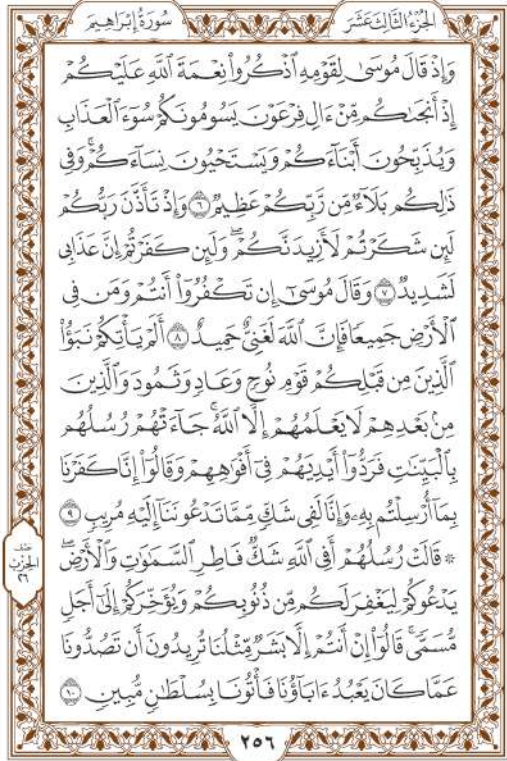 الجزء الثالث عشر
سورة إبراهيم
وَإِذْ قَالَ مُوسَىٰ لِقَوْمِهِ ٱذْكُرُوا۟ نِعْمَةَ ٱللَّهِ عَلَيْكُمْ
إِذْ أَنجَىٰكُم مِّنْ ءَالِ فِرْعَوْنَ يَسُومُونَكُمْ سُوٓءَ ٱلْعَذَابِ
وَيُذَبِّحُونَ أَبْنَآءَكُمْ وَيَسْتَحْيُونَ نِسَآءَكُمْ ۚ وَفِى
ذَٰلِكُم بَلَآءٌ مِّن رَّبِّكُمْ عَظِيمٌ ٦ وَإِذْ تَأَذَّنَ رَبُّكُمْ
لَئِن شَكَرْتُمْ لَأَزِيدَنَّكُمْ ۖ وَلَئِن كَفَرْتُمْ إِنَّ عَذَابِى
لَشَدِيدٌ ٧ وَقَالَ مُوسَىٰٓ إِن تَكْفُرُوٓا۟ أَنتُمْ وَمَن فِى
ٱلْأَرْضِ جَمِيعًا فَإِنَّ ٱللَّهَ لَغَنِىٌّ حَمِيدٌ ٨ أَلَمْ يَأْتِكُمْ نَبَؤُا۟
ٱلَّذِينَ مِن قَبْلِكُمْ قَوْمِ نُوحٍ وَعَادٍ وَثَمُودَ ۛ وَٱلَّذِينَ
مِنۢ بَعْدِهِمْ ۛ لَا يَعْلَمُهُمْ إِلَّا ٱللَّهُ ۚ جَآءَتْهُمْ رُسُلُهُم
بِٱلْبَيِّنَـٰتِ فَرَدُّوٓا۟ أَيْدِيَهُمْ فِىٓ أَفْوَٰهِهِمْ وَقَالُوٓا۟ إِنَّا كَفَرْنَا
بِمَآ أُرْسِلْتُم بِهِۦ وَإِنَّا لَفِى شَكٍّ مِّمَّا تَدْعُونَنَآ إِلَيْهِ مُرِيبٍ ٩
۞ قَالَتْ رُسُلُهُمْ أَفِى ٱللَّهِ شَكٌّ فَاطِرِ ٱلسَّمَـٰوَٰتِ وَٱلْأَرْضِ ۖ
يَدْعُوكُمْ لِيَغْفِرَ لَكُم مِّن ذُنُوبِكُمْ وَيُؤَخِّرَكُمْ إِلَىٰٓ أَجَلٍ
مُّسَمًّى ۚ قَالُوٓا۟ إِنْ أَنتُمْ إِلَّا بَشَرٌ مِّثْلُنَا تُرِيدُونَ أَن تَصُدُّونَا
عَمَّا كَانَ يَعْبُدُ ءَابَآؤُنَا فَأْتُونَا بِسُلْطَـٰنٍ مُّبِينٍ ١٠
الحزب
٢٦
٢٥٦